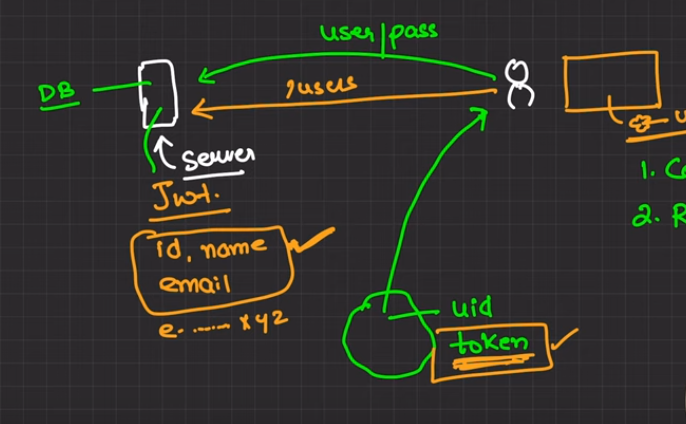 user/pass
DB
/users
server
Jwt.
1. C
id, name
2. R
email
e....... xyz
uid
token